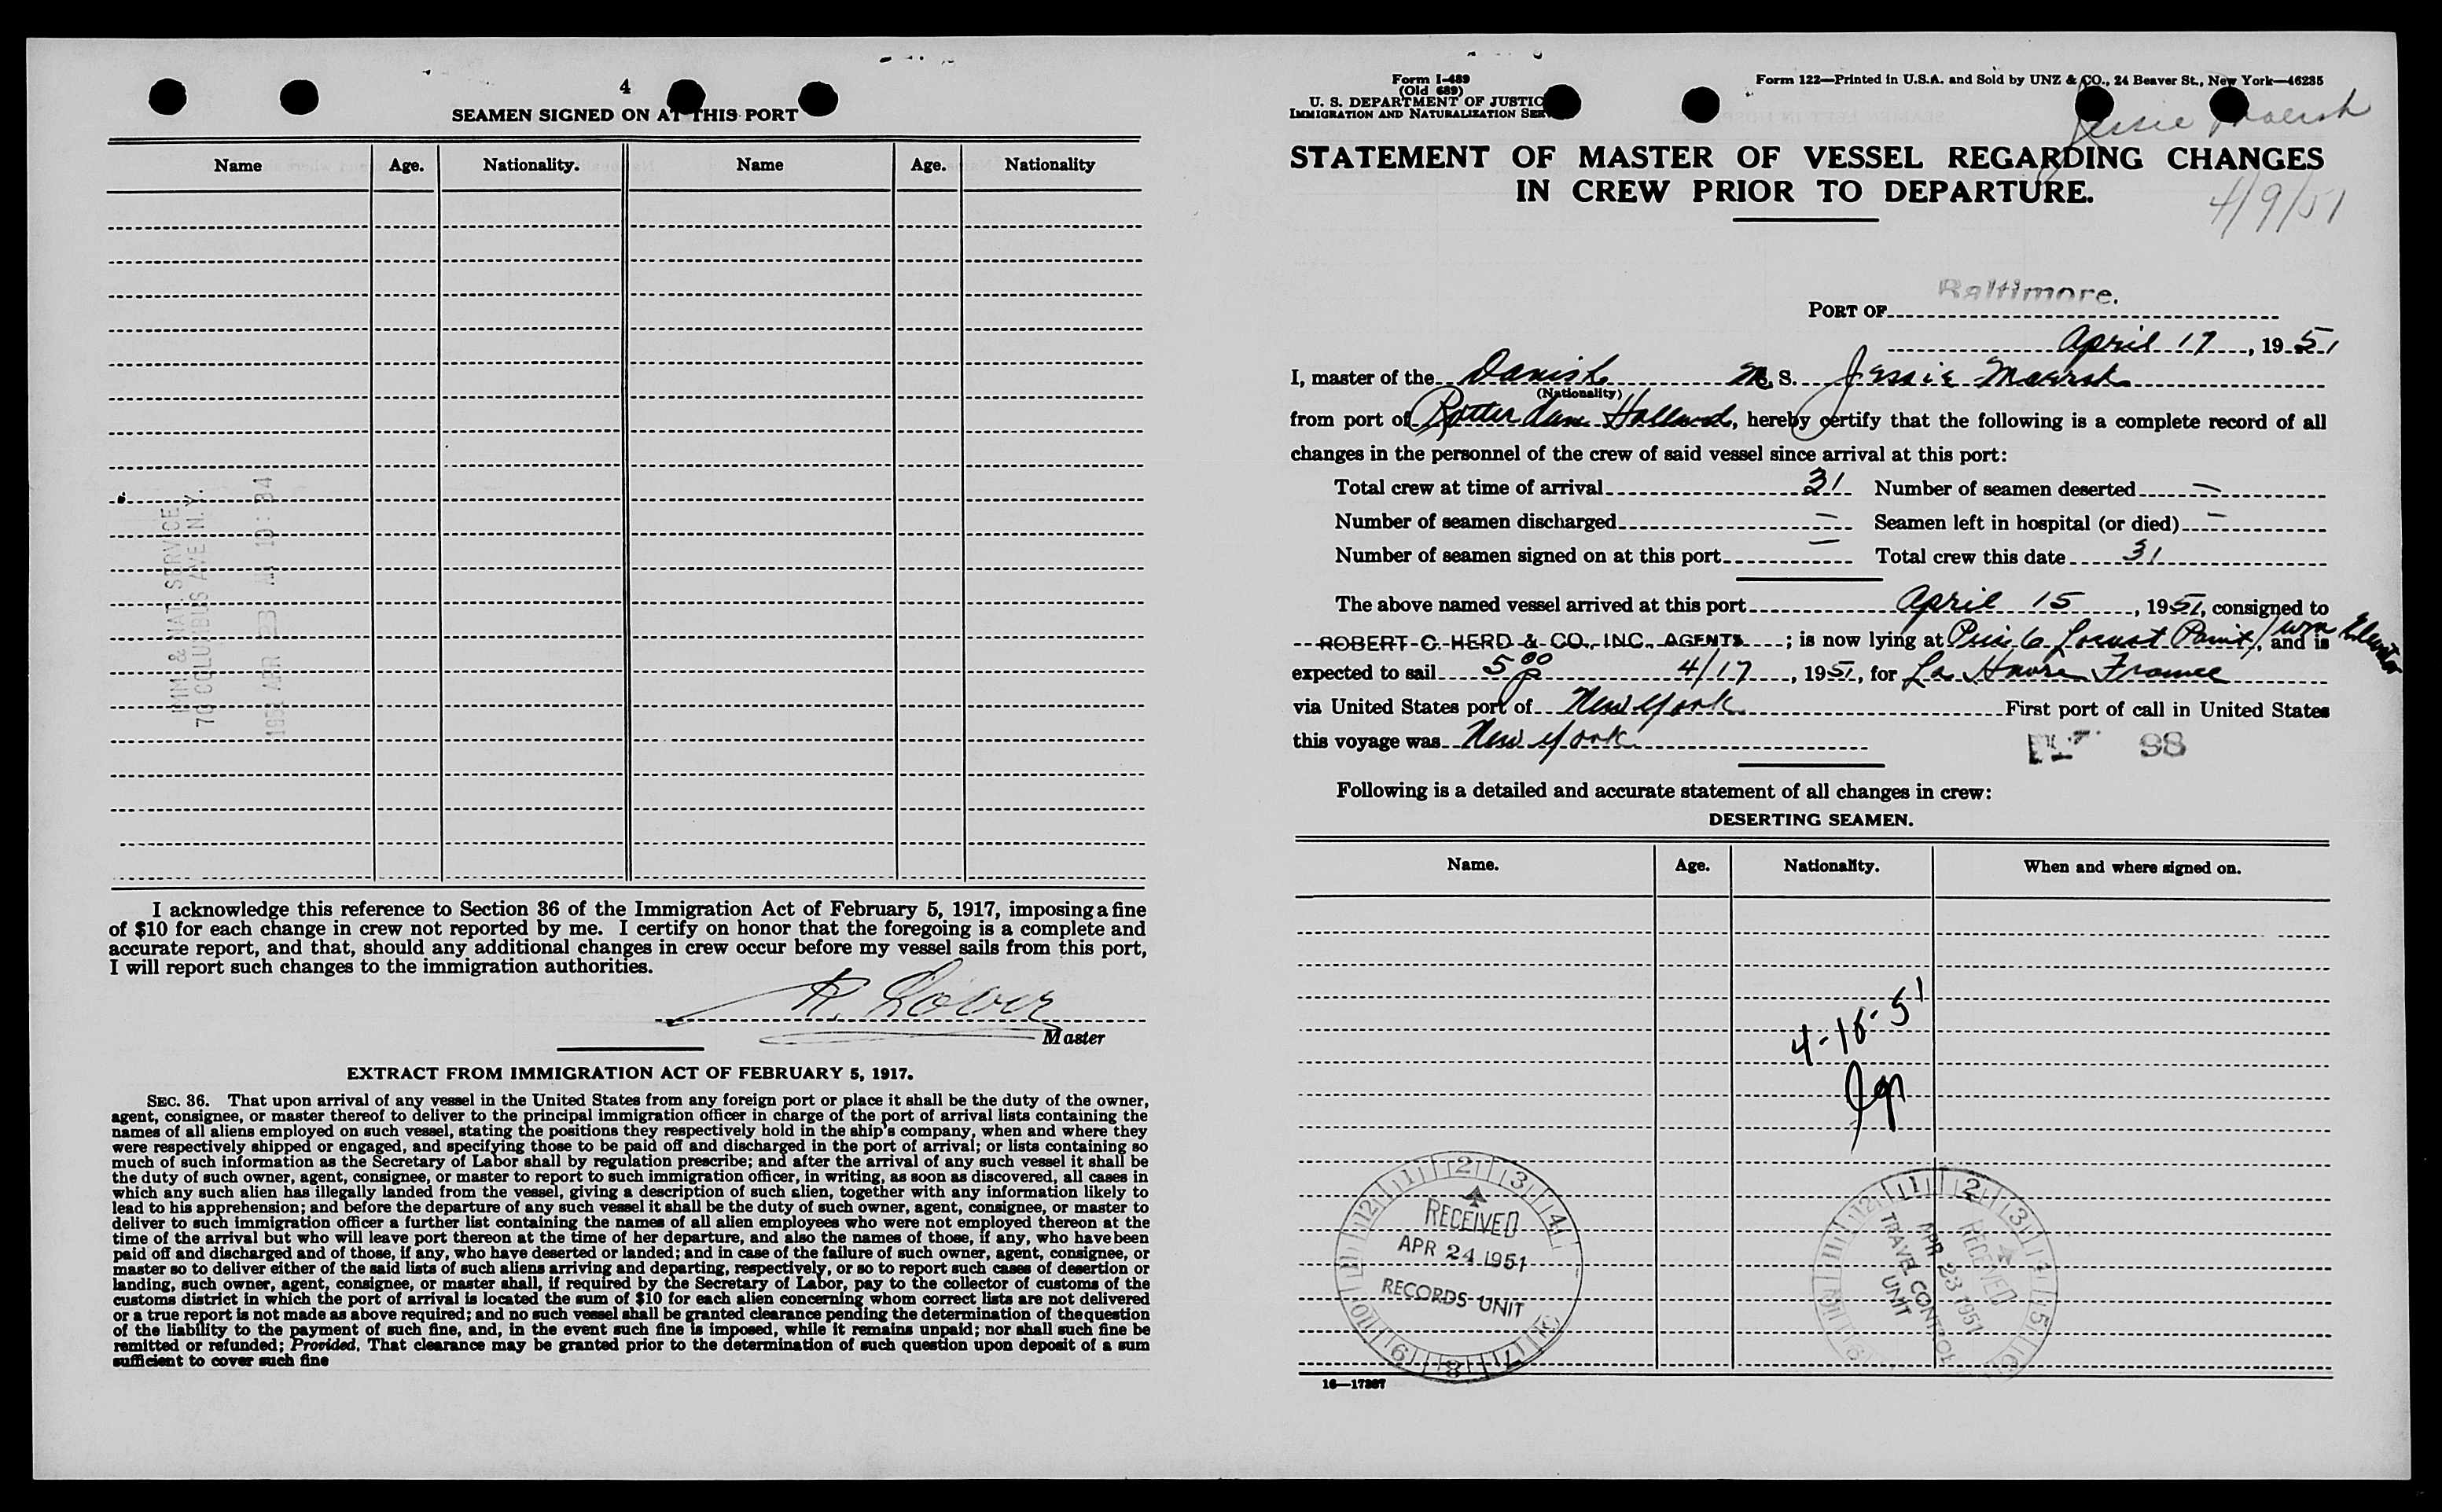 4
SEAMEN SIGNED ON AT THIS PORT
Name Age. Nationality. Name Age. Nationality
IMM & NAT. SERVICE
70 COLUMBUS AVE N.Y.
APR 23 10:34
I acknowledge this reference to Section 36 of the Immigration Act of February 5, 1917, imposing a fine
of $10 for each change in crew not reported by me. I certify on honor that the foregoing is a complete and
accurate report, and that, should any additional changes in crew occur before my vessel sails from this port,
I will report such changes to the immigration authorities.
Master
EXTRACT FROM IMMIGRATION ACT OF FEBRUARY 5, 1917.
SEC. 36. That upon arrival of any vessel in the United States from any foreign port or place it shall be the duty of the owner,
agent, consignee, or master thereof to deliver to the principal immigration officer in charge of the port of arrival lists containing the
names of all aliens employed on such vessel, stating the positions they respectively hold in the ship's company, when and where they
were respectively shipped or engaged, and specifying those to be paid off and discharged in the port of arrival; or lists containing so
much of such information as the Secretary of Labor shall by regulation prescribe; and after the arrival of any such vessel it shall be
the duty of such owner, agent, consignee, or master to report to such immigration officer, in writing, as soon as discovered, all cases in
which any such alien has illegally landed from the vessel, giving a description of such alien, together with any information likely to
lead to his apprehension; and before the departure of any such vessel it shall be the duty of such owner, agent, consignee, or master to
deliver to such immigration officer a further list containing the names of all alien employees who were not employed thereon at the
time of the arrival but who will leave port thereon at the time of her departure, and also the names of those, if any, who have been
paid off and discharged and of those, if any, who have deserted or landed; and in case of the failure of such owner, agent, consignee, or
master so to deliver either of the said lists of such aliens arriving and departing, respectively, or so to report such cases of desertion or
landing, such owner, agent, consignee, or master shall, if required by the Secretary of Labor, pay to the collector of customs of the
customs district in which the port of arrival is located the sum of $10 for each alien concerning whom correct lists are not delivered
or a true report is not made as above required; and no such vessel shall be granted clearance pending the determination of thequestion
of the liability to the payment of such fine, and, in the event such fine is imposed, while it remains unpaid; nor shall such fine be
remitted or refunded; Provided, That clearance may be granted prior to the determination of such question upon deposit of a sum
sufficient to cover such fine
Form I-489
(Old 689)
U. S. DEPARTMENT OF JUSTIC
IMMIGRATION AND NATURALIZATION SER
Form 122—Printed in U.S.A. and Sold by UNZ & CO., 24 Beaver St., New York—46235
Jessie Maersk
STATEMENT OF MASTER OF VESSEL REGARDING CHANGES
IN CREW PRIOR TO DEPARTURE.
4/9/51
PORT OF Baltimore.
April 17, 1951
I, master of the Danish M. S. Jessie Maersk
(Nationality)
from port of Rotterdam Holland, hereby certify that the following is a complete record of all
changes in the personnel of the crew of said vessel since arrival at this port:
Total crew at time of arrival 31 Number of seamen deserted —
Number of seamen discharged — Seamen left in hospital (or died) —
Number of seamen signed on at this port — Total crew this date 31
The above named vessel arrived at this port April 15, 1951, consigned to
ROBERT C. HERD & CO., INC., AGENTS; is now lying at Pier 6 Locust Point, and is
expected to sail 5 00 P 4/17, 1951, for La Havre France
via United States port of New York First port of call in United States
this voyage was New York
98
Following is a detailed and accurate statement of all changes in crew:
DESERTING SEAMEN.
Name. Age. Nationality. When and where signed on.
4-18-51
RECEIVED
APR 24 1951
RECORDS UNIT
RECEIVED
APR 23 1951
TRAVEL CONTROL
UNIT
16—17387